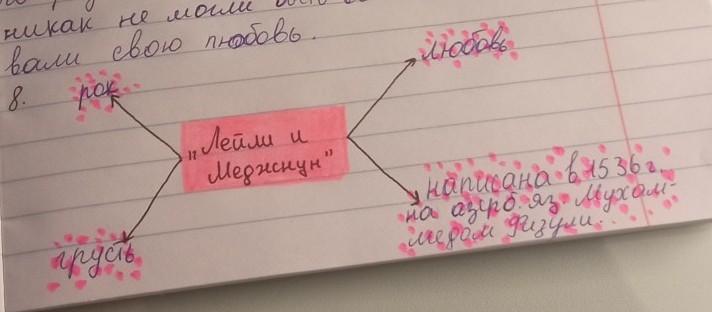 никак не могли
вали свою любовь.
8.
рок
любовь
"Лейли и
Меджнун"
написана в 1536 г.
на азерб. яз. Мухам-
медом Физули.
грусть